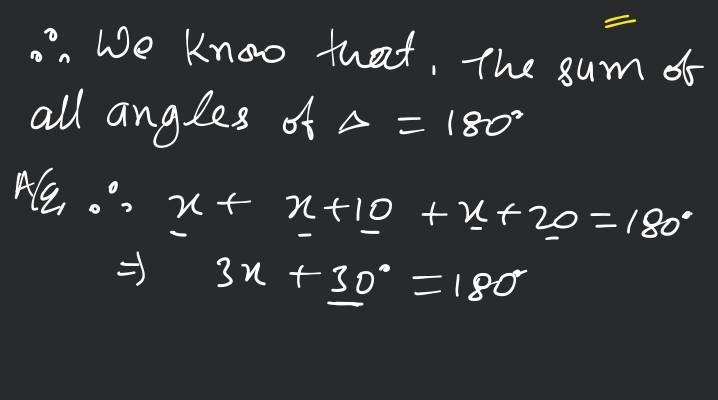 ∴ We know that, The sum of
all angles of △ = 180°
A/Q, ∴ x + x+10 + x+20 = 180°
⇒ 3x + 30° = 180°